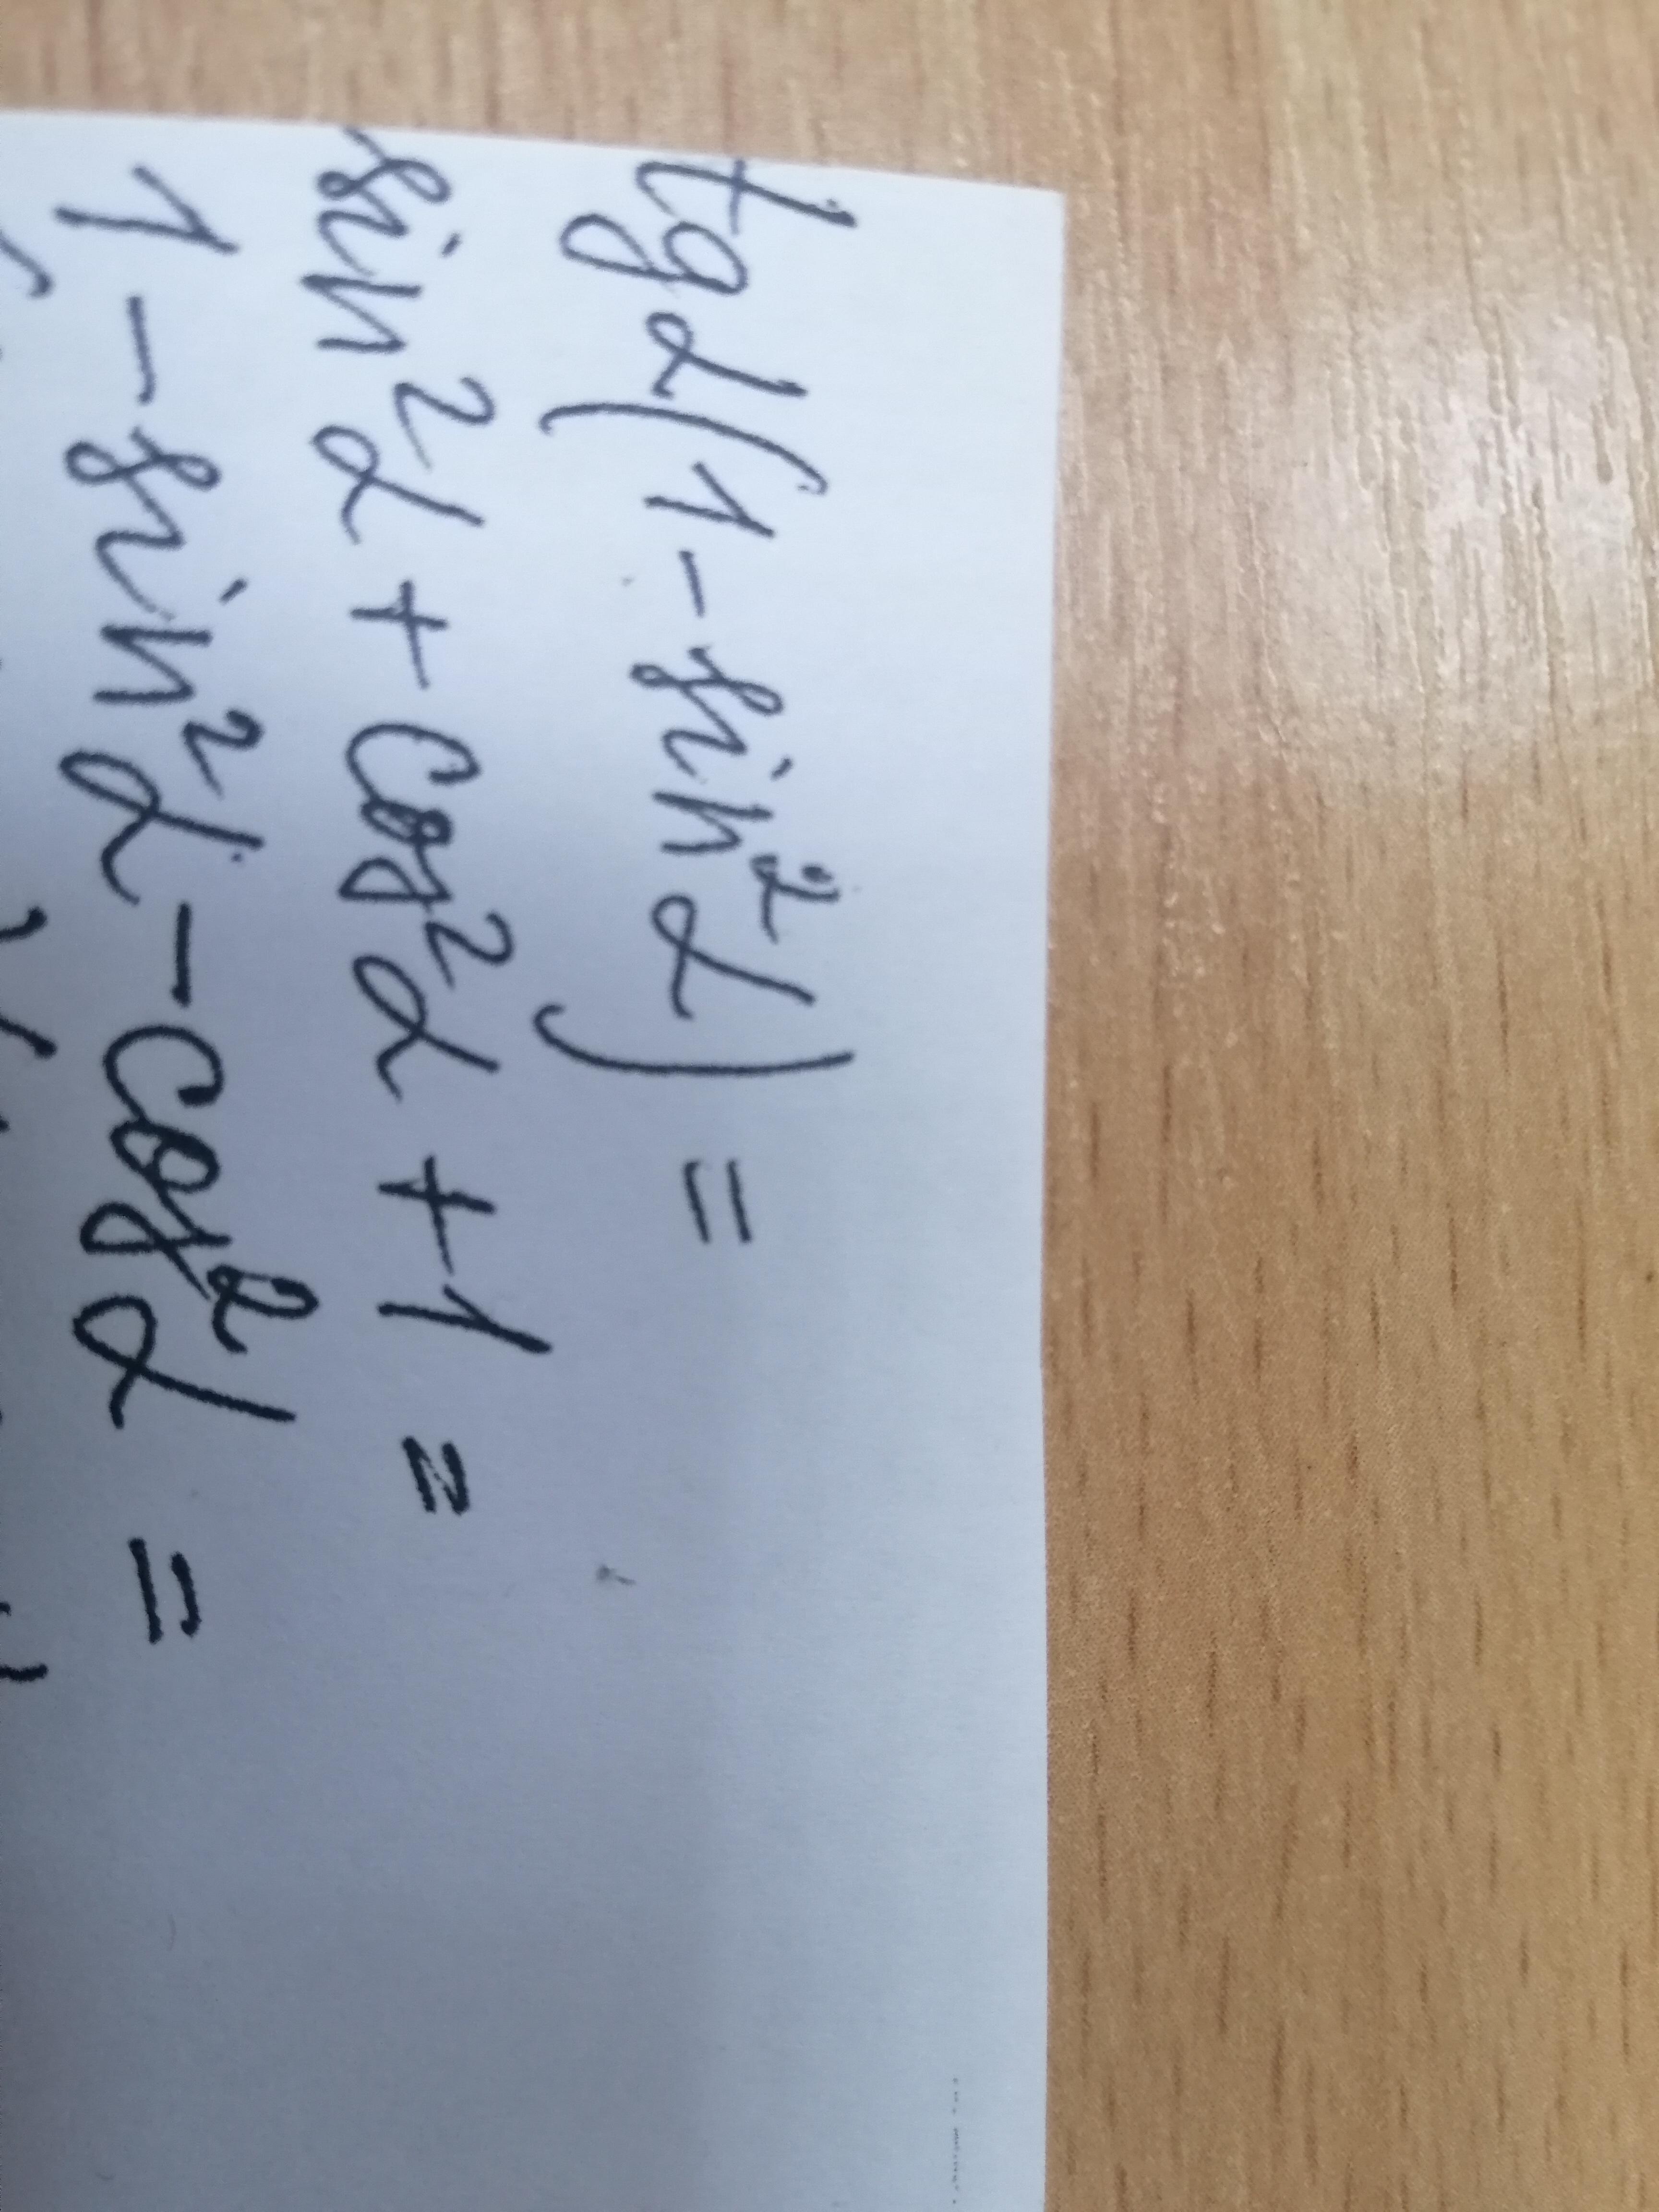 tgα(1-sin²α) =
sin²α + cos²α + 1 =
1 - sin²α - cos²α =